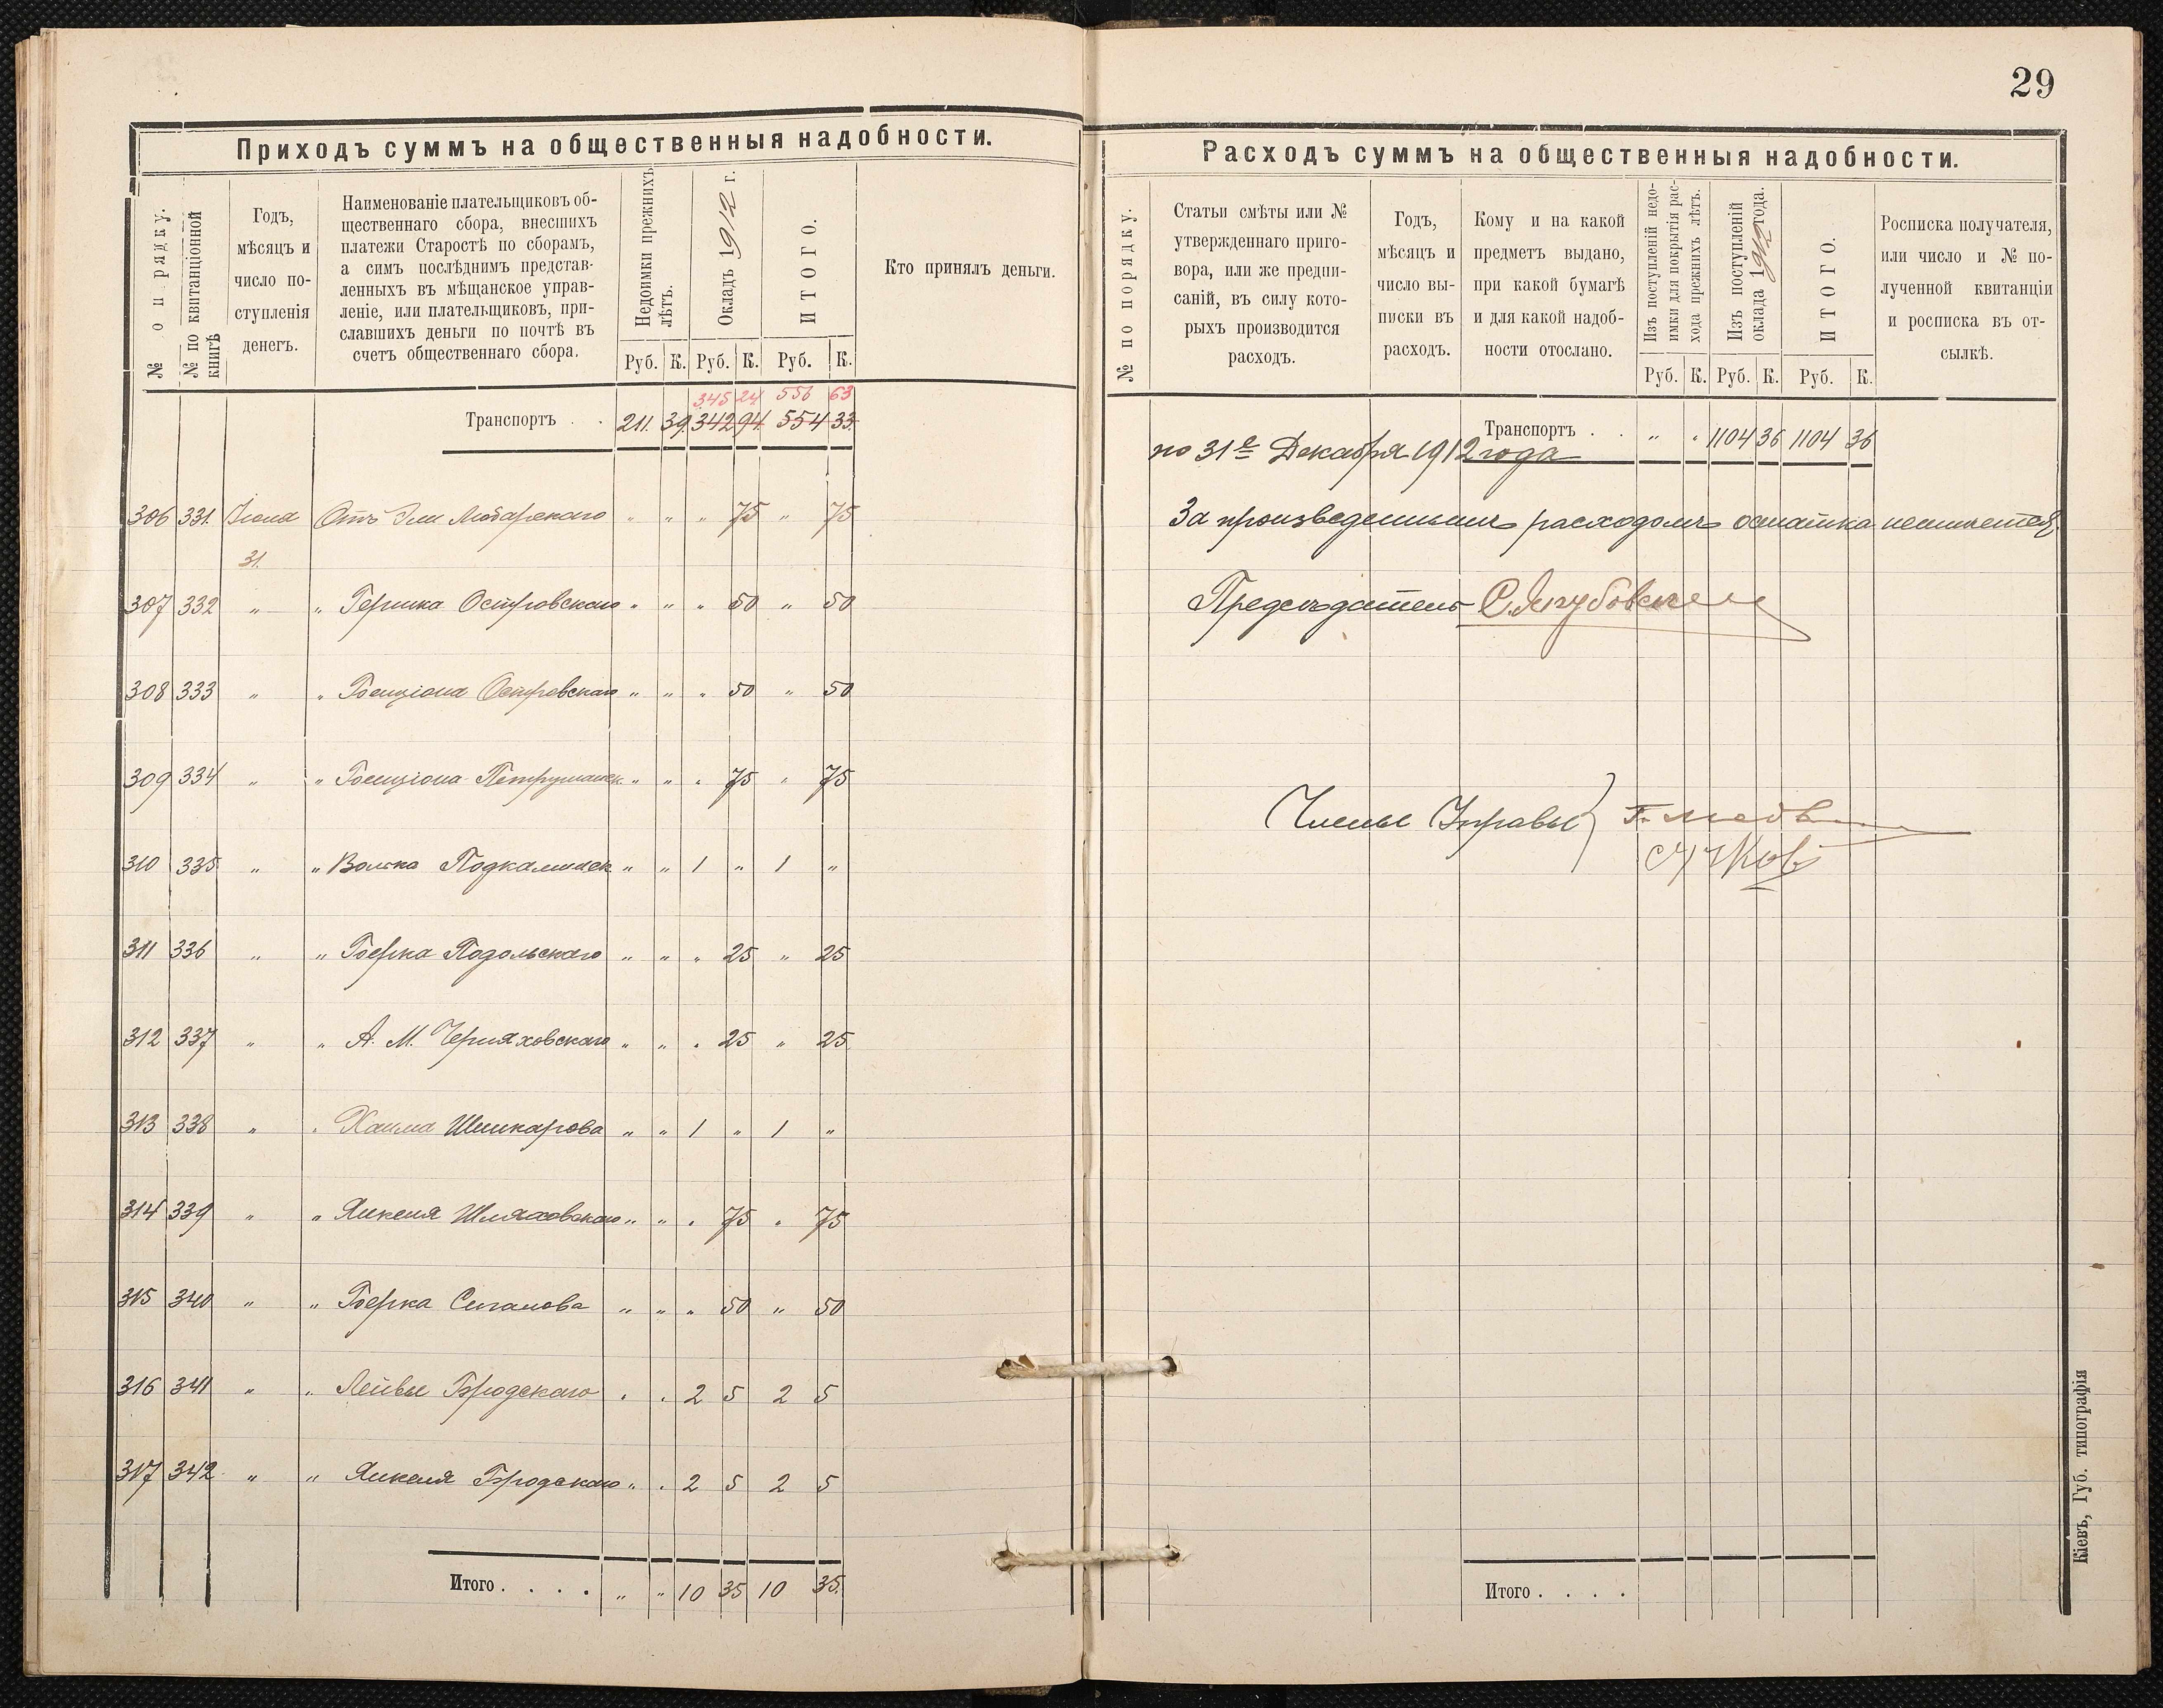 29
Приходъ суммъ на общественныя надобности.
№ по рядку.
№ по квитанціонной книгѣ
Годъ,
мѣсяцъ и
число по-
ступленія
денегъ.
Наименованіе плательщиковъ об-
щественнаго сбора, внесшихъ
платежи Старостѣ по сборамъ,
а симъ послѣднимъ представ-
ленныхъ въ мѣщанское управ-
леніе, или плательщиковъ, при-
славшихъ деньги по почтѣ въ
счетъ общественнаго сбора.
Недоимки прежнихъ
лѣтъ.
Окладъ 1912 г.
ИТОГО.
Кто принялъ деньги.
Руб. К. Руб. К. Руб. К.
345 24 556 63
Транспортъ . . 211. 39. 342 94. 554 33.
306 331. Іюля Отъ Эли Любарскаго " " " 75 " 75
31.
307 332 " " Гершка Островскаго " " " 50 " 50
308 333 " " Бенціона Островскаго " " " 50 " 50
309 334 " " Бенціона Петрушанск. " " " 75 " 75
310 335 " " Волька Подкаминск " " 1 " 1 "
311 336 " " Берка Подольскаго " " " 25 " 25
312 337 " " А. М. Черняховскаго " " " 25 " 25
313 338 " " Хаима Шинкарова " " 1 " 1 "
314 339 " " Янкеля Шляховскаго " " " 75 " 75
315 340 " " Берка Сиганова " " " 50 " 50
316 341 " " Лейвы Бродскаго " " 2 5 2 5
317 342 " " Янкеля Бродскаго " " 2 5 2 5
Итого . . . . " " 10 35 10 35.
Расходъ суммъ на общественныя надобности.
№ по порядку.
Статьи смѣты или №
утвержденнаго приго-
вора, или же предпи-
саній, въ силу кото-
рыхъ производится
расходъ.
Годъ,
мѣсяцъ и
число вы-
писки въ
расходъ.
Кому и на какой
предметъ выдано,
при какой бумагѣ
и для какой надоб-
ности отослано.
Изъ поступленій недо-
имки для покрытія рас-
хода прежнихъ лѣтъ.
Изъ поступленій
оклада 1912 года.
ИТОГО.
Росписка получателя,
или число и № по-
лученной квитанціи
и росписка въ от-
сылкѣ.
Руб. К. Руб. К. Руб. К.
Транспортъ . . " " 1104 36 1104 36
по 31е Декабря 1912 года
За произведеннымъ расходомъ остатка неимѣется.
Предсѣдатель С. Якубовскій
Члены Управы
Итого . . . .
Кіевъ, Губ. типографія